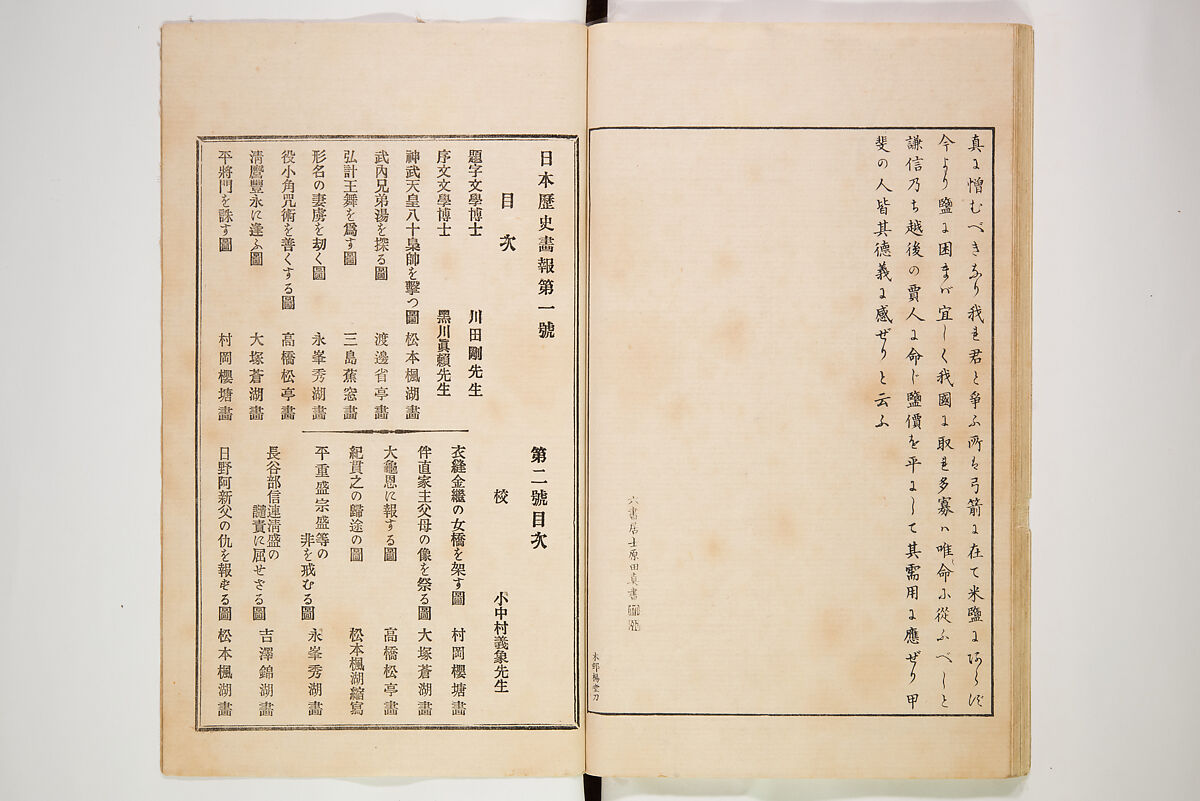 真に憎むべきなり我れ君と爭ふ所は弓箭に在て米鹽にあらず
今より鹽に困まば宜しく我國に取れ多寡は唯命に從ふべしと
謙信乃ち越後の賈人に命じ鹽價を平にして其需用に應ぜり甲
斐の人皆其德義に感ぜりと云ふ
六書居士原田真書
木邨楊堂刀
日本歷史畫報第一號
目次
題字文學博士 川田剛先生
序文文學博士 黑川眞賴先生
神武天皇八十梟帥を擊つ圖 松本楓湖畫
武內兄弟湯を探る圖 渡邊省亭畫
弘計王舞を爲す圖 三島蕉窓畫
形名の妻虜を劫く圖 永峯秀湖畫
役小角咒術を善くする圖 高橋松亭畫
淸麿豐永に逢ふ圖 大塚蒼湖畫
平將門を誅す圖 村岡櫻塘畫
第二號目次
校 小中村義象先生
衣縫金繼の女橋を架す圖 村岡櫻塘畫
伴直家主父母の像を祭る圖 大塚蒼湖畫
大龜恩に報する圖 高橋松亭畫
紀貫之の歸途の圖 松本楓湖縮寫
平重盛宗盛等の
非を戒むる圖 永峯秀湖畫
長谷部信連淸盛の
譴責に屈せさる圖 吉澤錦湖畫
日野阿新父の仇を報ずる圖 松本楓湖畫